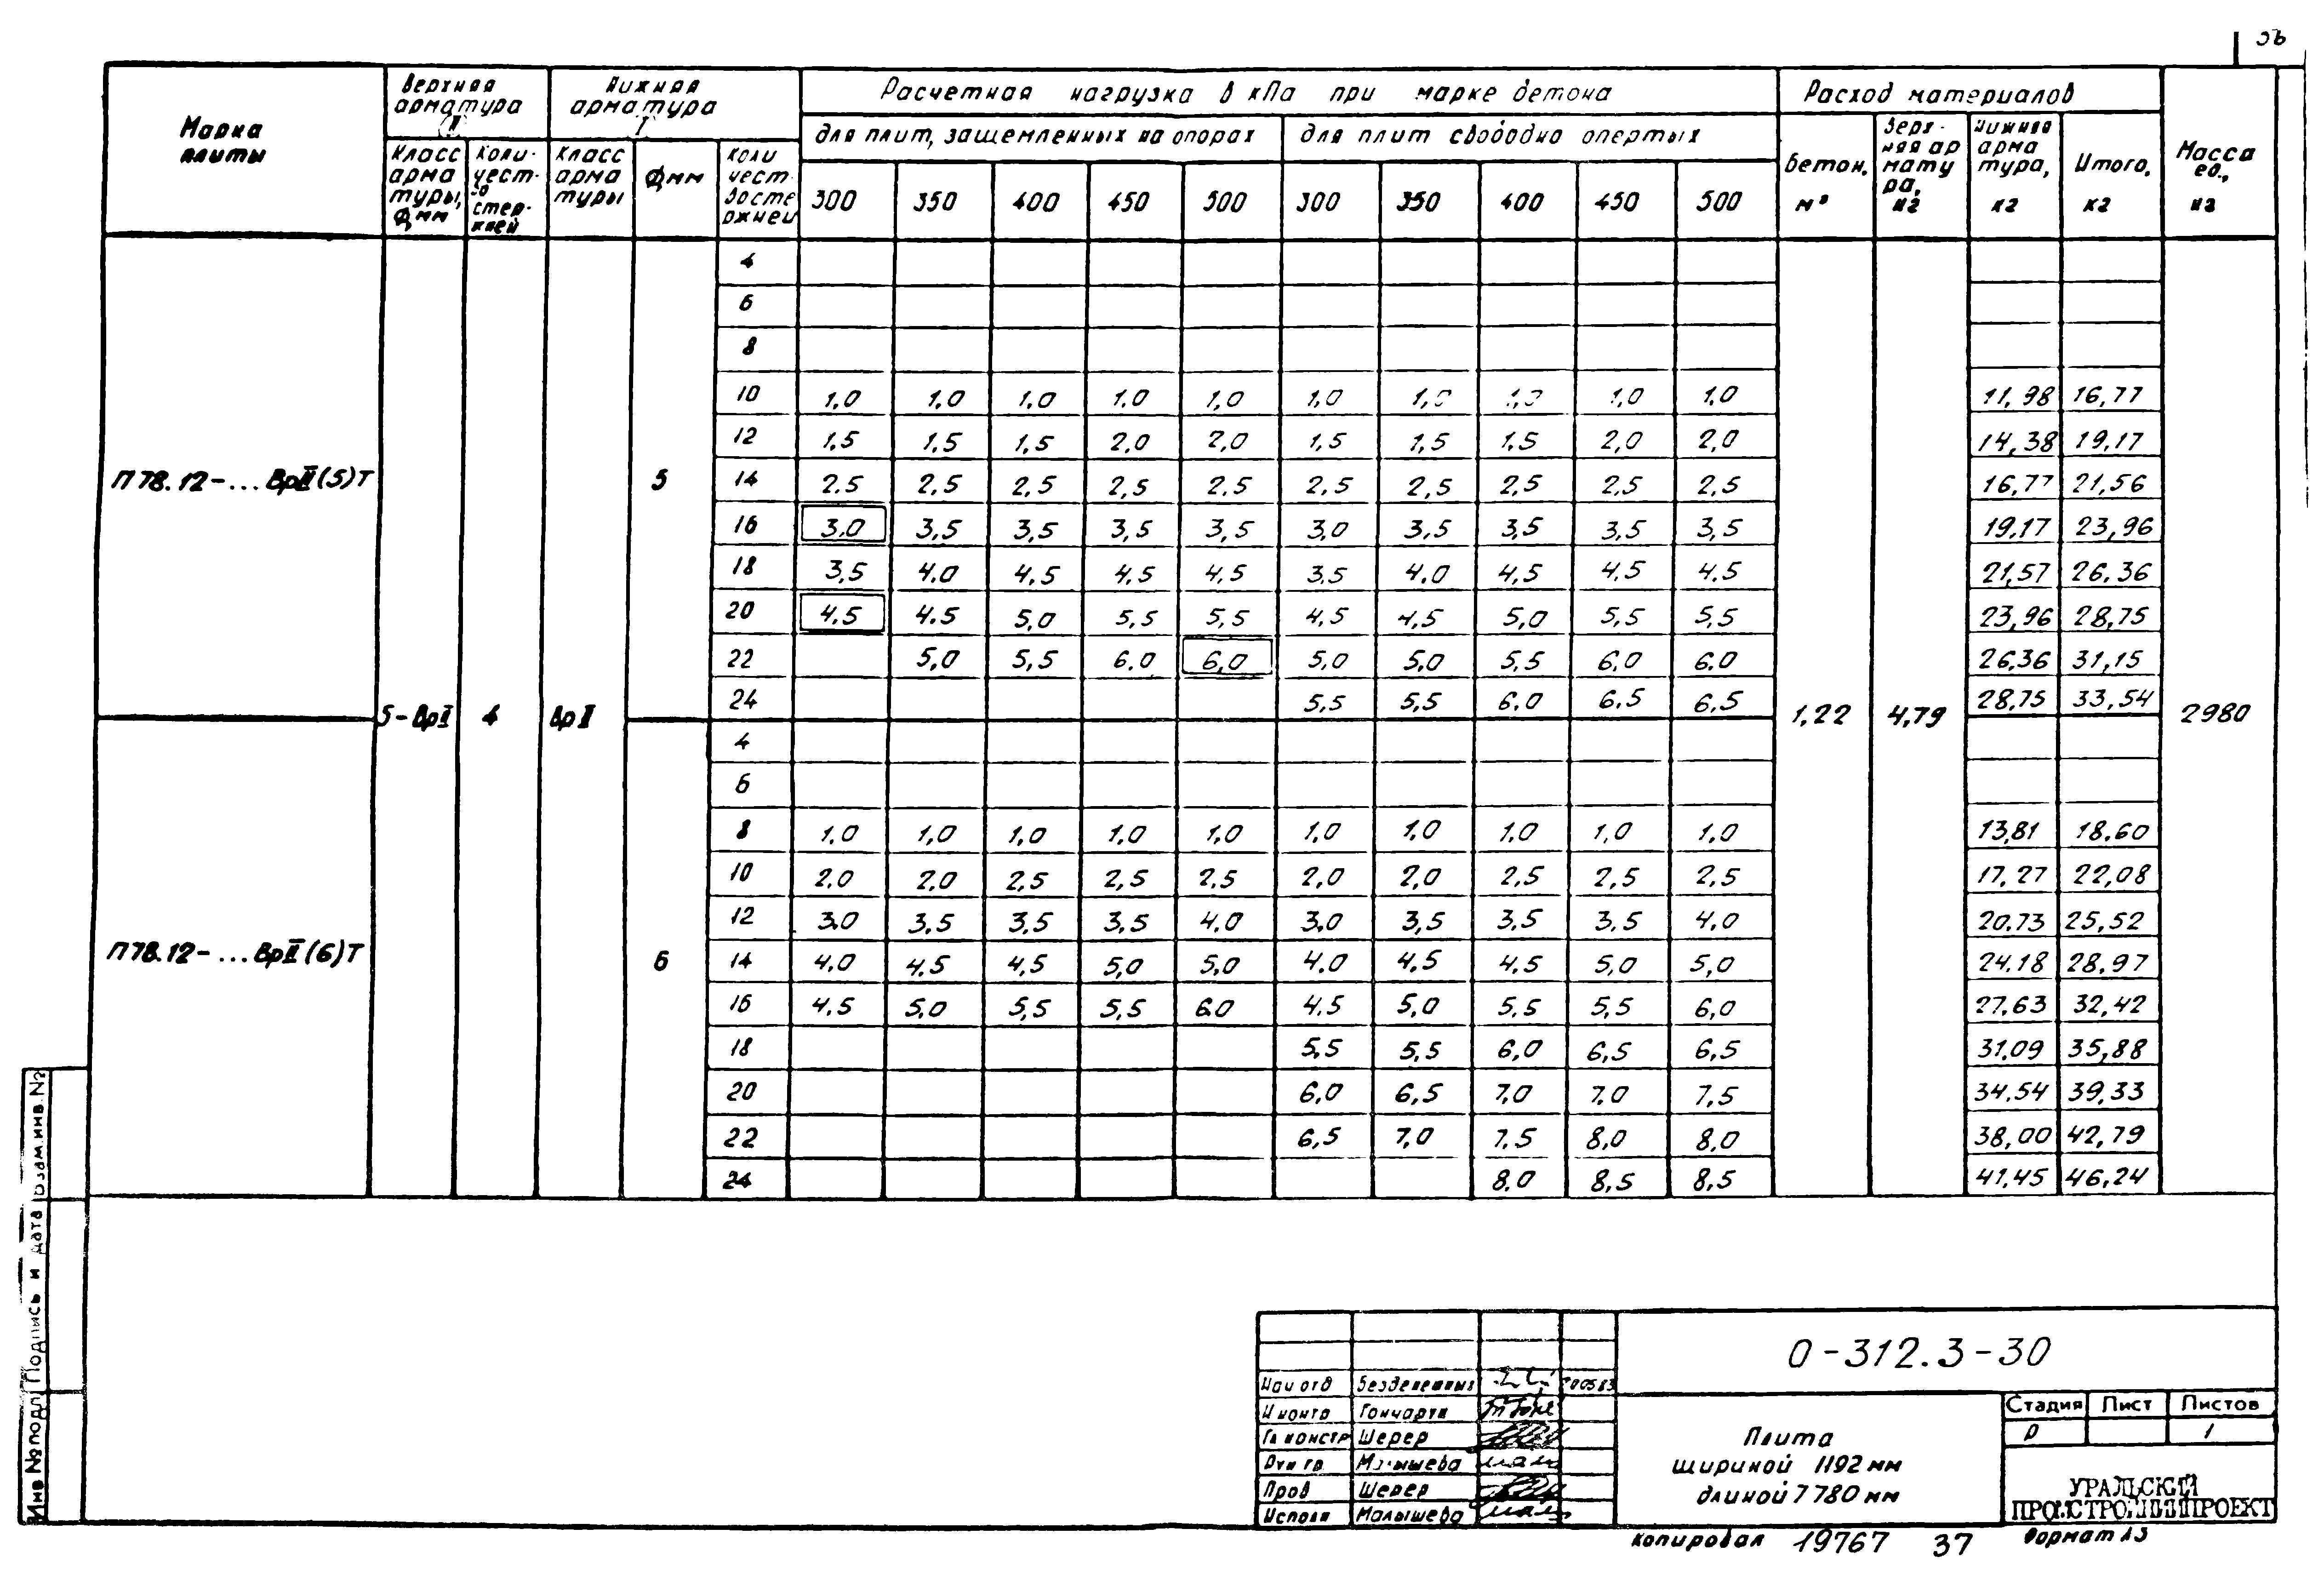 Марка плиты
Верхняя арматура II
Нижняя арматура I
Расчетная нагрузка в кПа при марке бетона
Расход материалов
Масса ед., кг
для плит, защемленных на опорах
для плит свободно опертых
Класс арматуры, Ф мм
Количество стержней
Класс арматуры
Ф мм
Количество стержней
300 350 400 450 500 300 350 400 450 500
Бетон, м³
Верхняя арматура, кг
Нижняя арматура, кг
Итого, кг
П78.12-...ВрII(5)Т
5-ВрI 4 ВрII 5
1,22 4,79 2980
4
6
8
10 1,0 1,0 1,0 1,0 1,0 1,0 1,0 1,0 1,0 1,0 11,98 16,77
12 1,5 1,5 1,5 2,0 2,0 1,5 1,5 1,5 2,0 2,0 14,38 19,17
14 2,5 2,5 2,5 2,5 2,5 2,5 2,5 2,5 2,5 2,5 16,77 21,56
16 3,0 3,5 3,5 3,5 3,5 3,0 3,5 3,5 3,5 3,5 19,17 23,96
18 3,5 4,0 4,5 4,5 4,5 3,5 4,0 4,5 4,5 4,5 21,57 26,36
20 4,5 4,5 5,0 5,5 5,5 4,5 4,5 5,0 5,5 5,5 23,96 28,75
22 5,0 5,5 6,0 6,0 5,0 5,0 5,5 6,0 6,0 26,36 31,15
24 5,5 5,5 6,0 6,5 6,5 28,75 33,54
П78.12-...ВрII(6)Т
6
4
6
8 1,0 1,0 1,0 1,0 1,0 1,0 1,0 1,0 1,0 1,0 13,81 18,60
10 2,0 2,0 2,5 2,5 2,5 2,0 2,0 2,5 2,5 2,5 17,27 22,08
12 3,0 3,5 3,5 3,5 4,0 3,0 3,5 3,5 3,5 4,0 20,73 25,52
14 4,0 4,5 4,5 5,0 5,0 4,0 4,5 4,5 5,0 5,0 24,18 28,97
16 4,5 5,0 5,5 5,5 6,0 4,5 5,0 5,5 5,5 6,0 27,63 32,42
18 5,5 5,5 6,0 6,5 6,5 31,09 35,88
20 6,0 6,5 7,0 7,0 7,5 34,54 39,33
22 6,5 7,0 7,5 8,0 8,0 38,00 42,79
24 8,0 8,5 8,5 41,45 46,24
Инв № подл Подпись и дата Взам.инв.№
Нач отд Безденежных
Н контр Гончарти
Гл констр Шерер
Рук гр Малышева
Пров Шерер
Исполн Малышева
0-312.3-30
Плита
шириной 1192 мм
длиной 7780 мм
Стадия Лист Листов
Р 1
УРАЛЬСКИЙ
ПРОМСТРОЙНИИПРОЕКТ
Копировал 19767 37 Формат А3